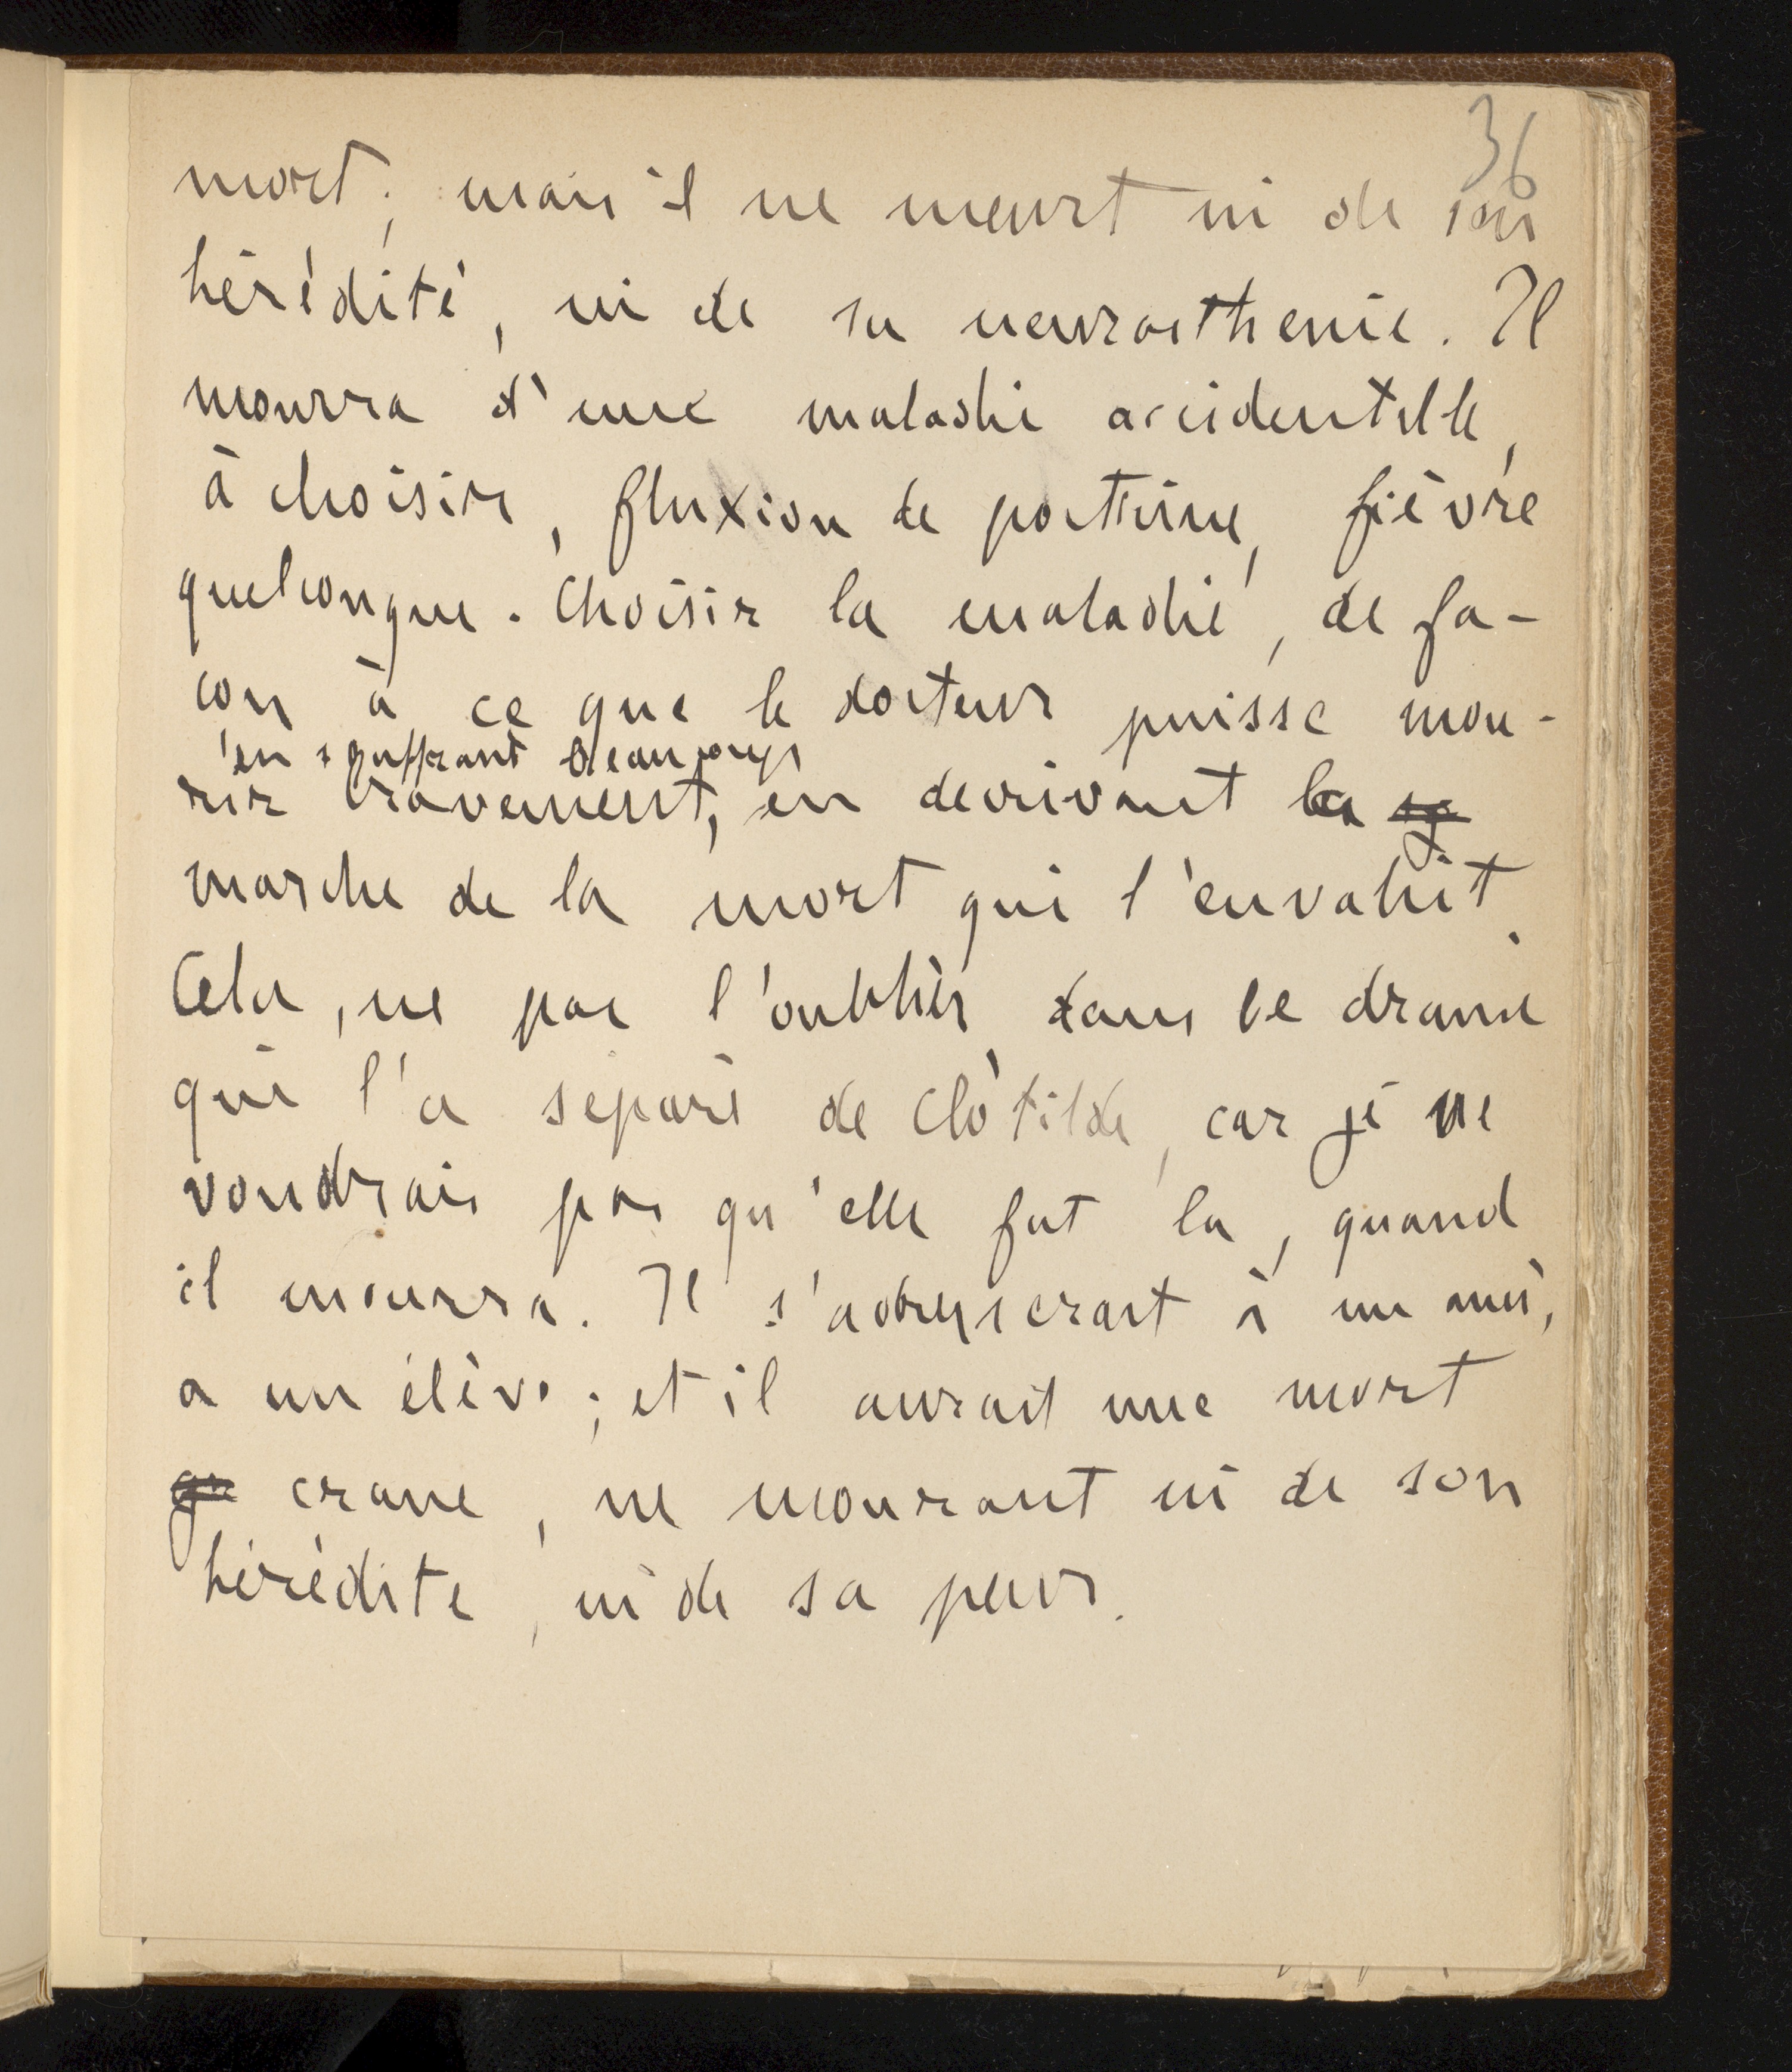 36
mort ; mais il ne meurt ni de son
hérédité, ni de sa neurasthenie. Il
mourra d'une maladie accidentelle,
à choisir, fluxion de poitrine, fièvre
quelconque. Choisir la maladie, de fa-
con à ce que le docteur puisse mou-
en souffrant beaucoup
rir bravement, en decrivant la
marche de la mort qui l'envahit.
Cela, ne pas l'oublier, dans le drame
qui l'a séparé de Clotilde, car je ne
voudrais pas qu'elle fut la, quand
il mourra. Il s'adresserait à un ami,
a un élève ; et il aurait une mort
qu crane, ne mourant ni de son
hérédite, ni de sa peur.